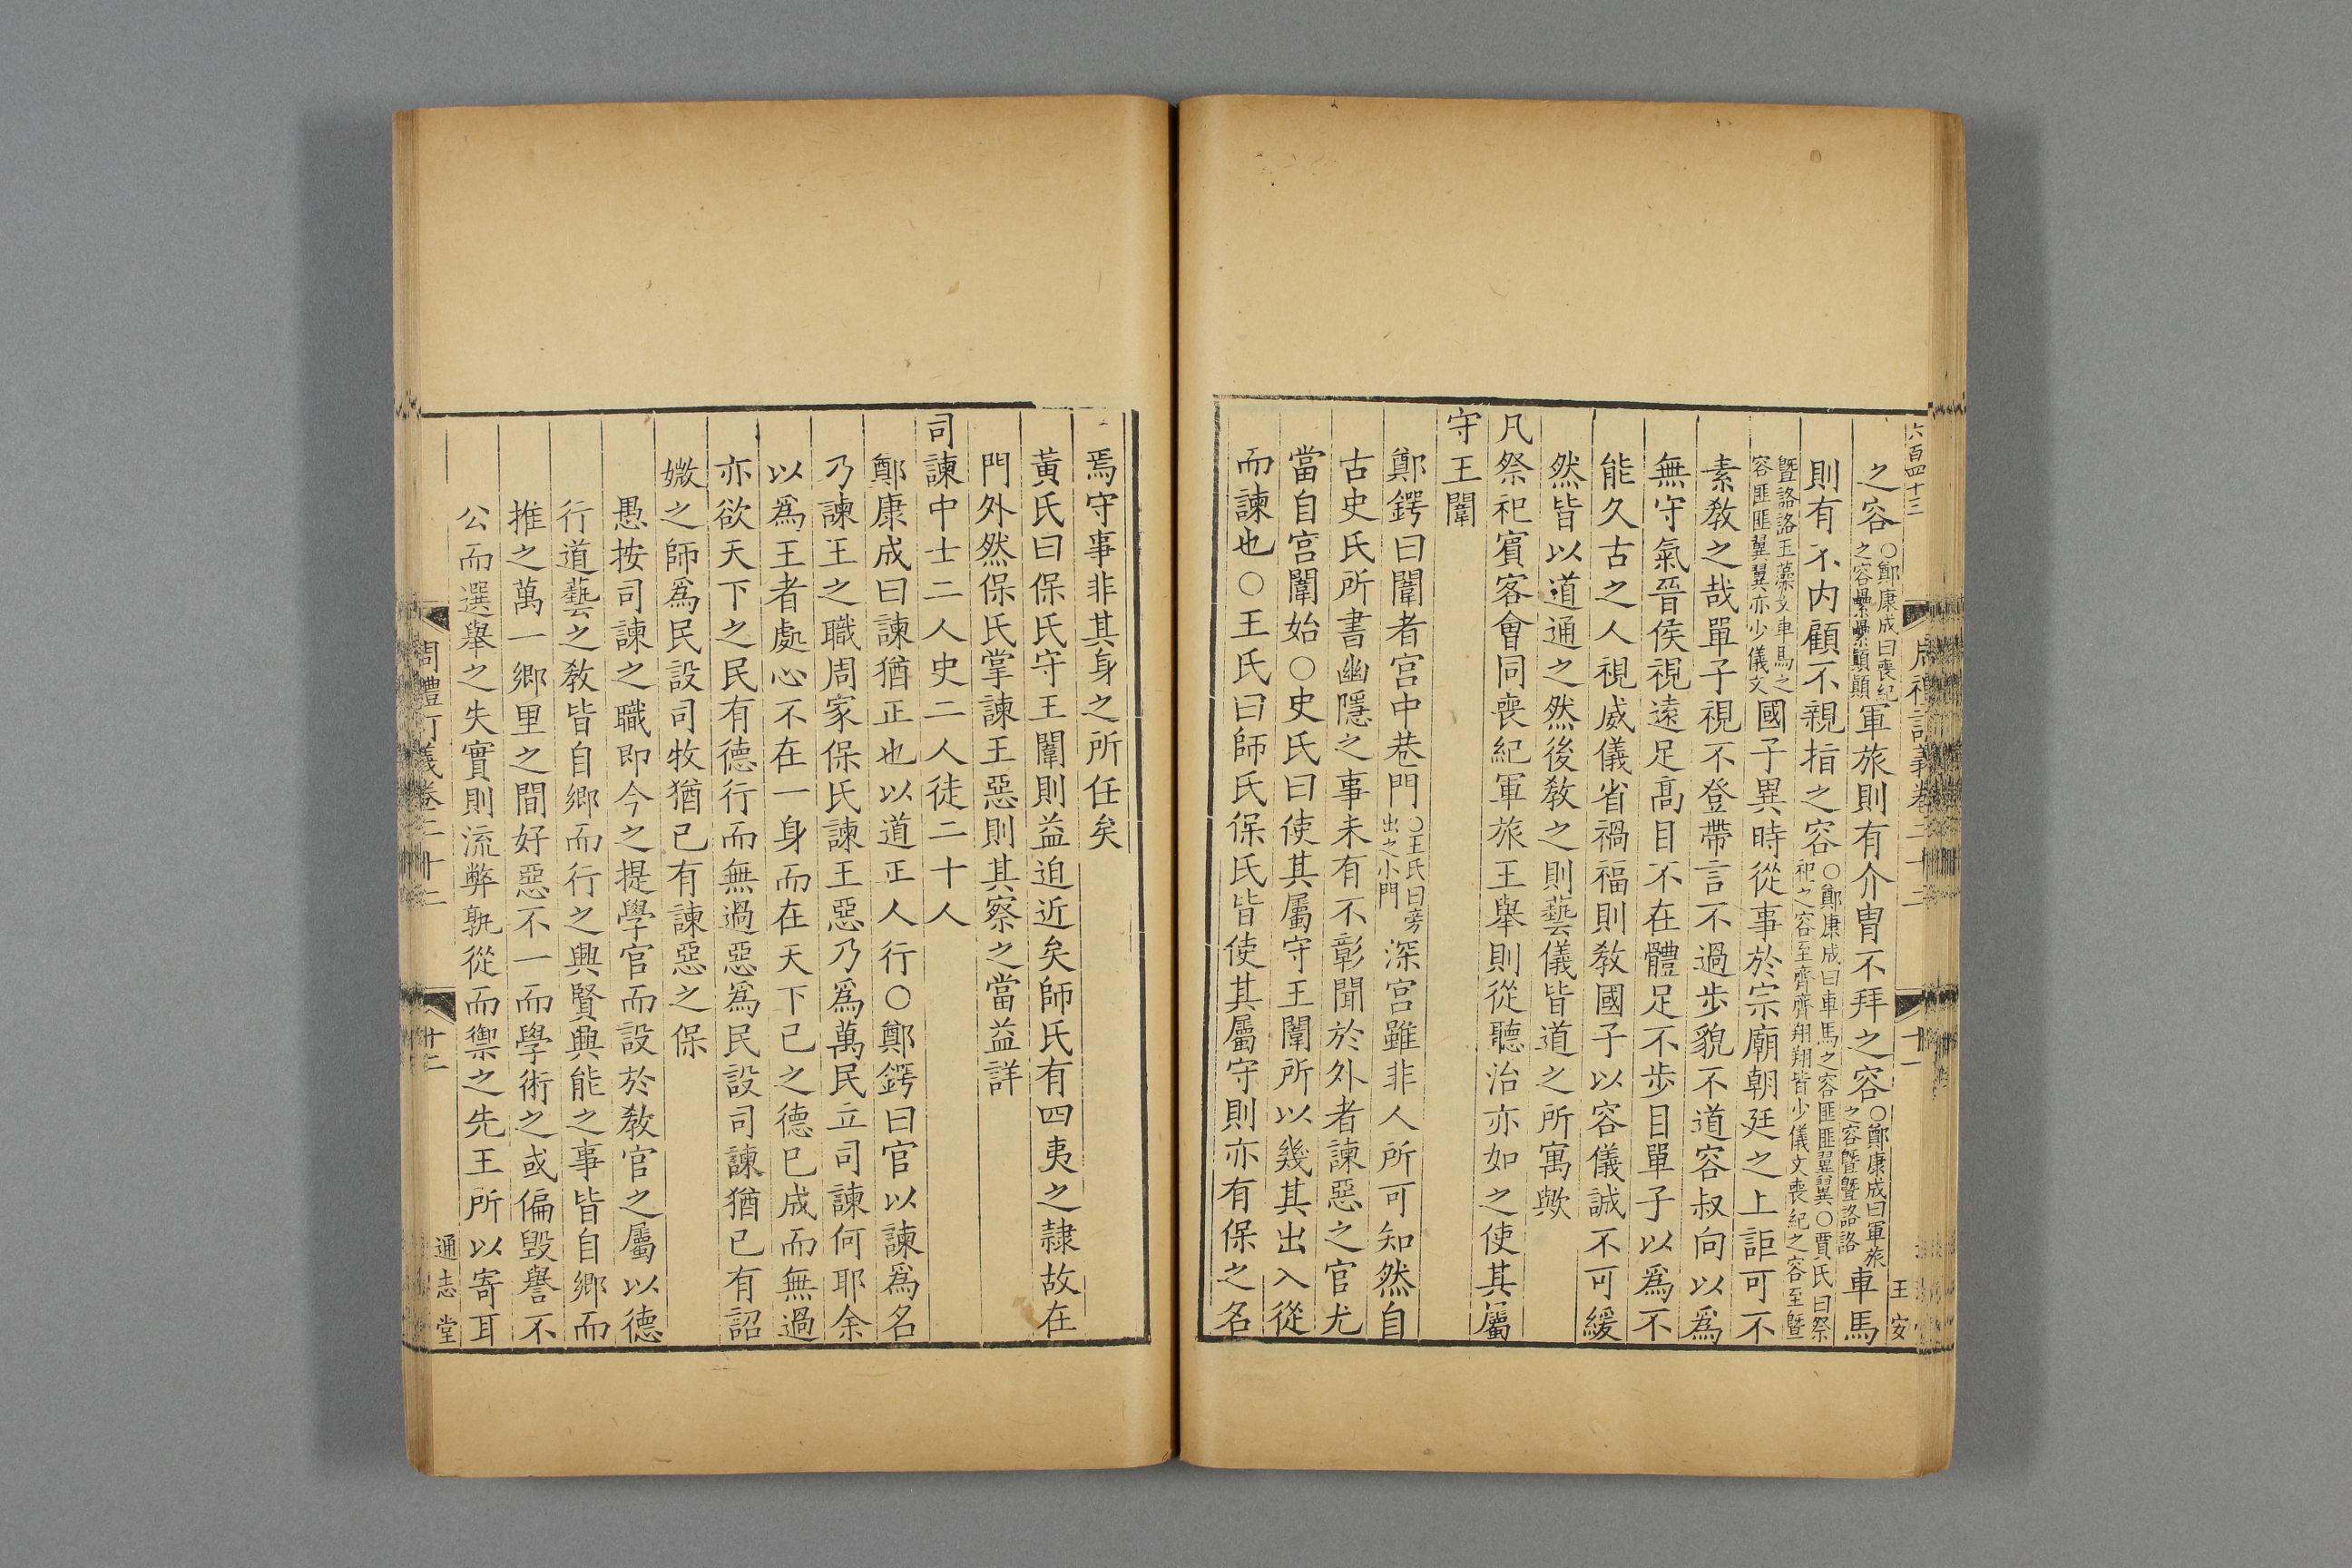 六百四十三
周禮訂義卷二十二
十一
王安
之容○鄭康成曰喪紀之容纍纍顛顛軍旅則有介冑不拜之容○鄭康成曰軍旅之容曁曁詻詻車馬
則有不内顧不親指之容○鄭康成曰車馬之容匪匪翼翼○賈氏曰祭祀之容至齊齊翔翔皆少儀文喪紀之容至曁
曁詻詻玉藻文車馬之容匪匪翼翼亦少儀文國子異時從事於宗廟朝廷之上詎可不
素教之哉單子視不登帶言不過步貌不道容叔向以爲
無守氣晉侯視遠足高目不在體足不步目單子以爲不
能久古之人視威儀省禍福則教國子以容儀誠不可緩
然皆以道通之然後教之則藝儀皆道之所寓歟
凡祭祀賓客會同喪紀軍旅王舉則從聽治亦如之使其屬
守王闈
鄭鍔曰闈者宮中巷門○王氏曰旁出之小門深宮雖非人所可知然自
古史氏所書幽隱之事未有不彰聞於外者諫惡之官尤
當自宮闈始○史氏曰使其屬守王闈所以幾其出入從
而諫也○王氏曰師氏保氏皆使其屬守則亦有保之名
焉守事非其身之所任矣
黃氏曰保氏守王闈則益迫近矣師氏有四夷之隷故在
門外然保氏掌諫王惡則其察之當益詳
司諫中士二人史二人徒二十人
鄭康成曰諫猶正也以道正人行○鄭鍔曰官以諫爲名
乃諫王之職周家保氏諫王惡乃爲萬民立司諫何耶余
以爲王者處心不在一身而在天下已之德已成而無過
亦欲天下之民有德行而無過惡爲民設司諫猶已有詔
媺之師爲民設司牧猶已有諫惡之保
愚按司諫之職即今之提學官而設於教官之屬以德
行道藝之教皆自鄉而行之興賢興能之事皆自鄉而
推之萬一鄉里之間好惡不一而學術之或偏毀譽不
公而選舉之失實則流弊孰從而禦之先王所以寄耳
周禮訂義卷二十二
十二
通志堂